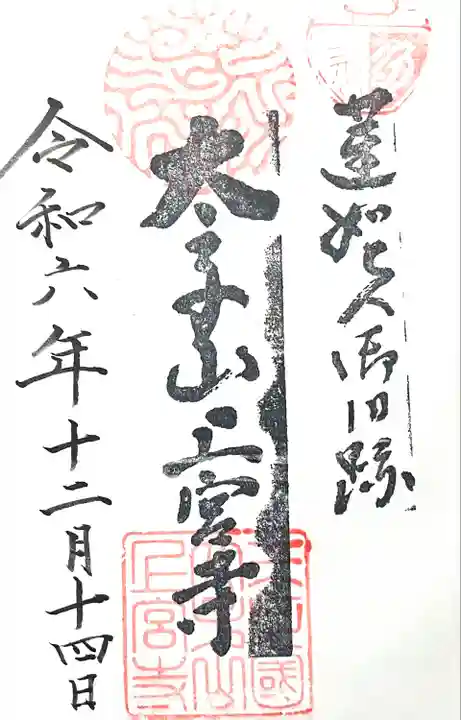 蓮如上人御旧跡
太子山上宮寺
令和六年十二月十四日
上宮寺